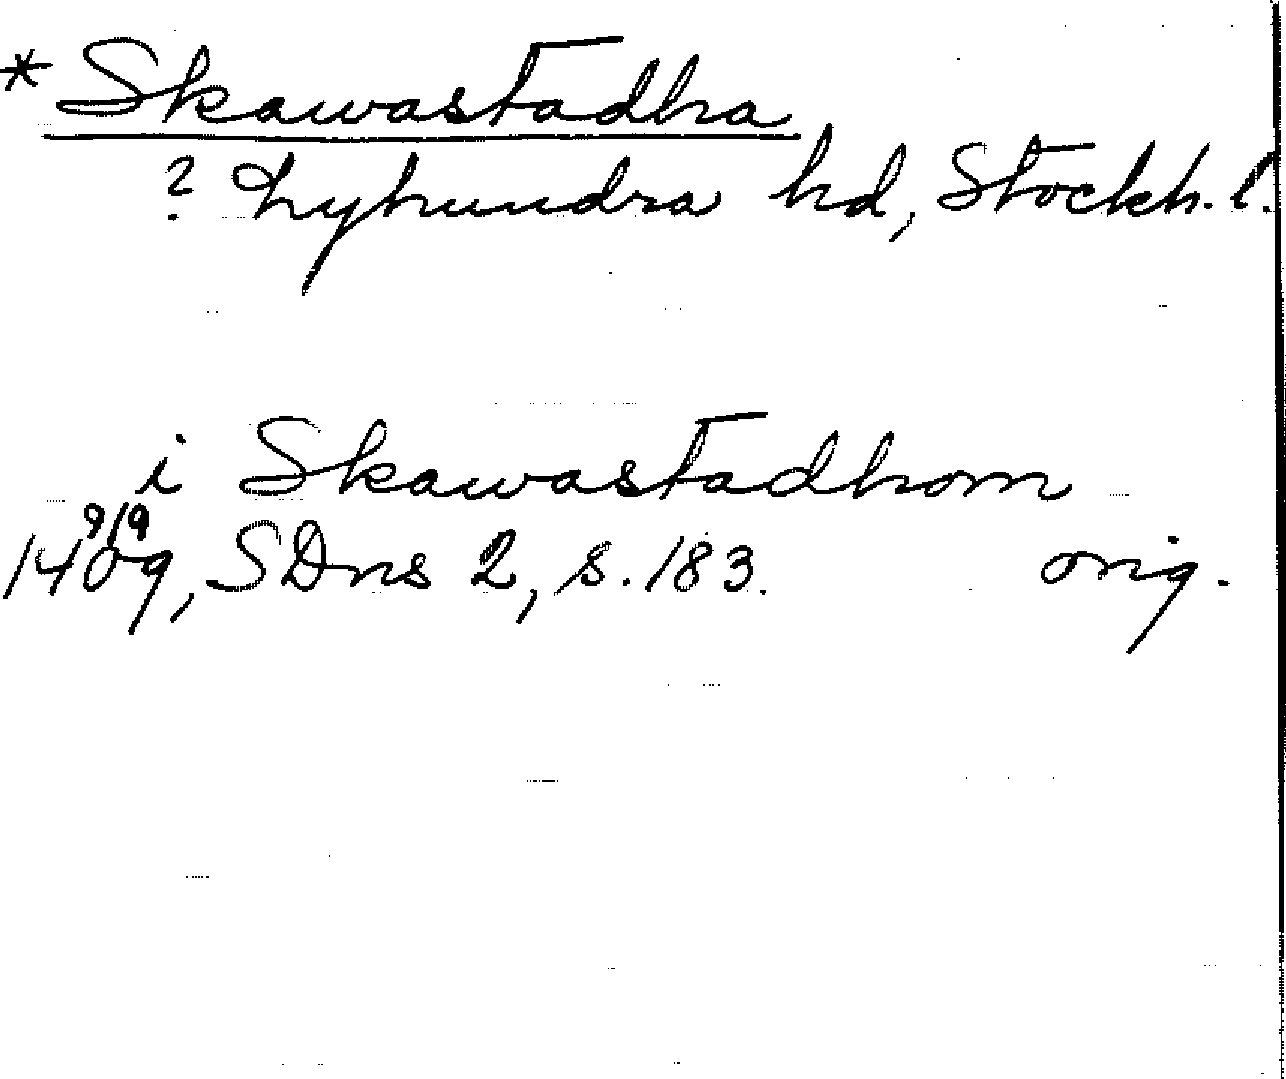 * Skawastadha
? Lyhundra hd, Stockh. l.
i Skawastadhom
1409 9/9, SDns 2, s. 183. orig.